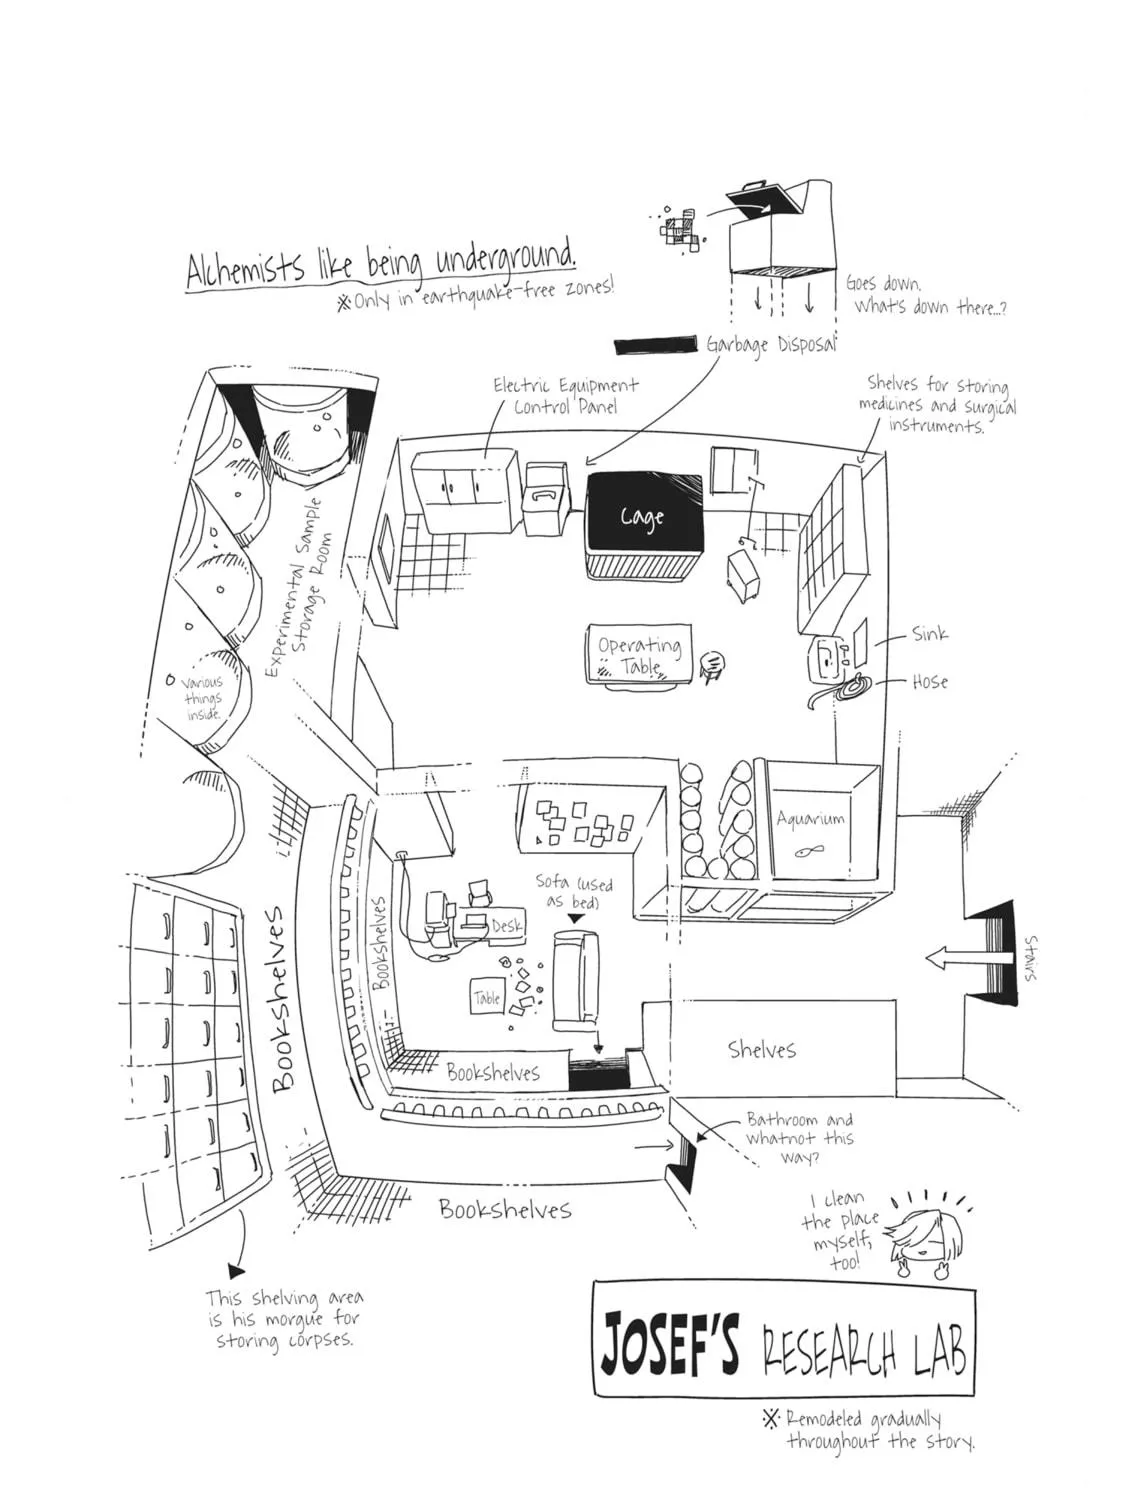 Alchemists like being underground.
※Only in earthquake-free zones!
Goes down.
What's down there...?
Garbage Disposal
Electric Equipment
Control Panel
Shelves for storing
medicines and surgical
instruments.
Cage
Experimental Sample
Storage Room
Operating
Table
Sink
Hose
Various
things
inside.
Aquarium
Sofa (used
as bed)
Desk
Table
Stairs
Bookshelves
Bookshelves
Bookshelves
Shelves
Bathroom and
whatnot this
way?
Bookshelves
I clean
the place
myself,
too!
This shelving area
is his morgue for
storing corpses.
JOSEF'S RESEARCH LAB
※ Remodeled gradually
throughout the story.